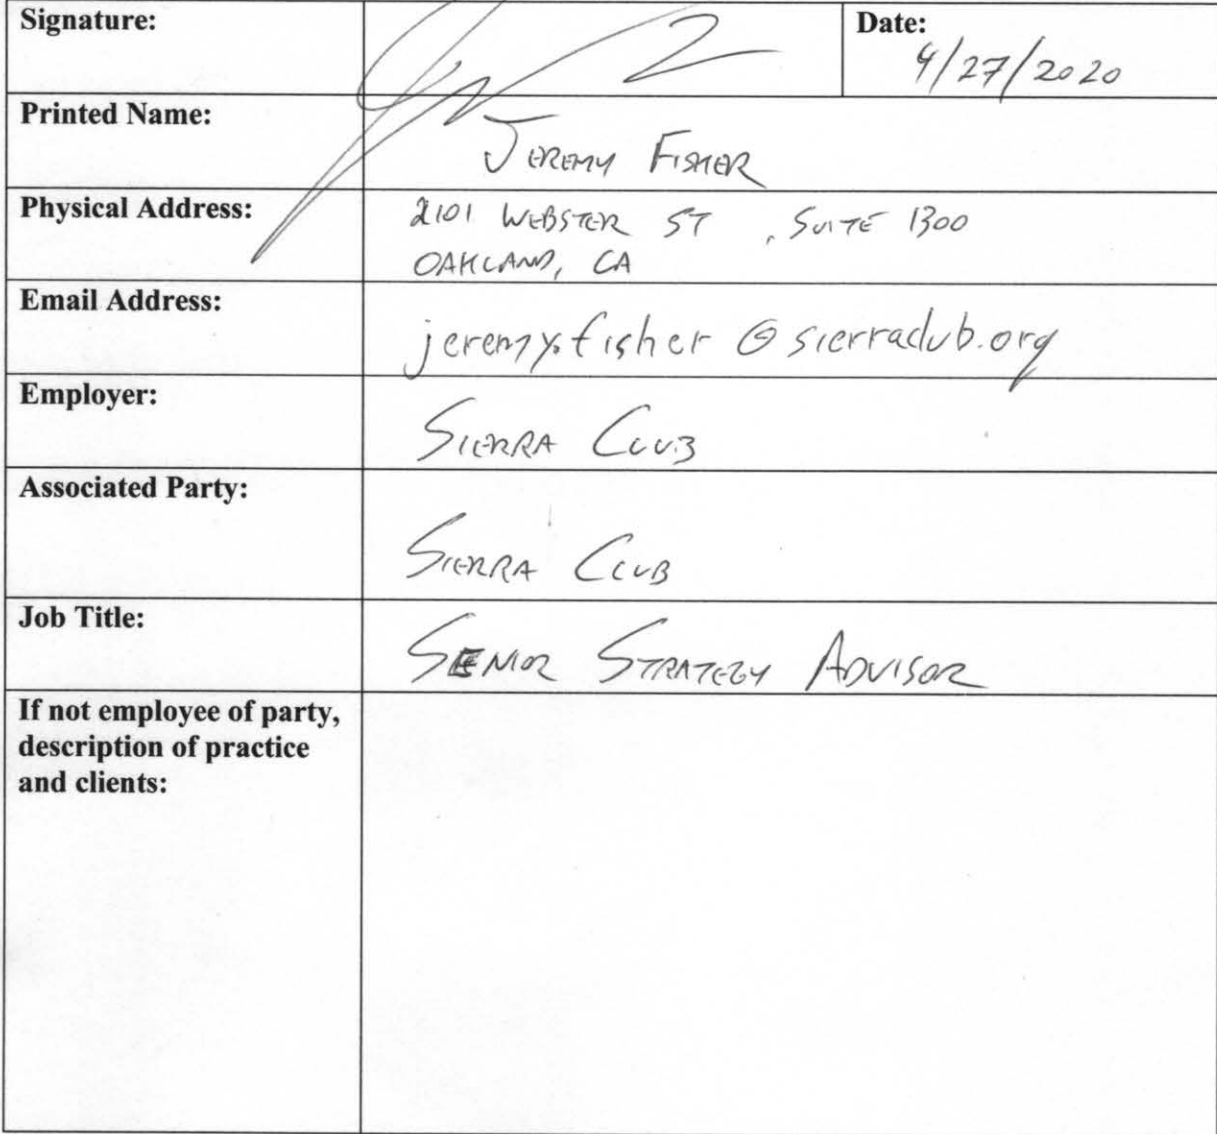 Signature:
Date:
4/27/2020
Printed Name:
JEREMY FISHER
Physical Address:
2101 WEBSTER ST , SUITE 1300
OAKLAND, CA
Email Address:
jeremy.fisher@sierraclub.org
Employer:
SIERRA CLUB
Associated Party:
SIERRA CLUB
Job Title:
SENIOR STRATEGY ADVISOR
If not employee of party,
description of practice
and clients: